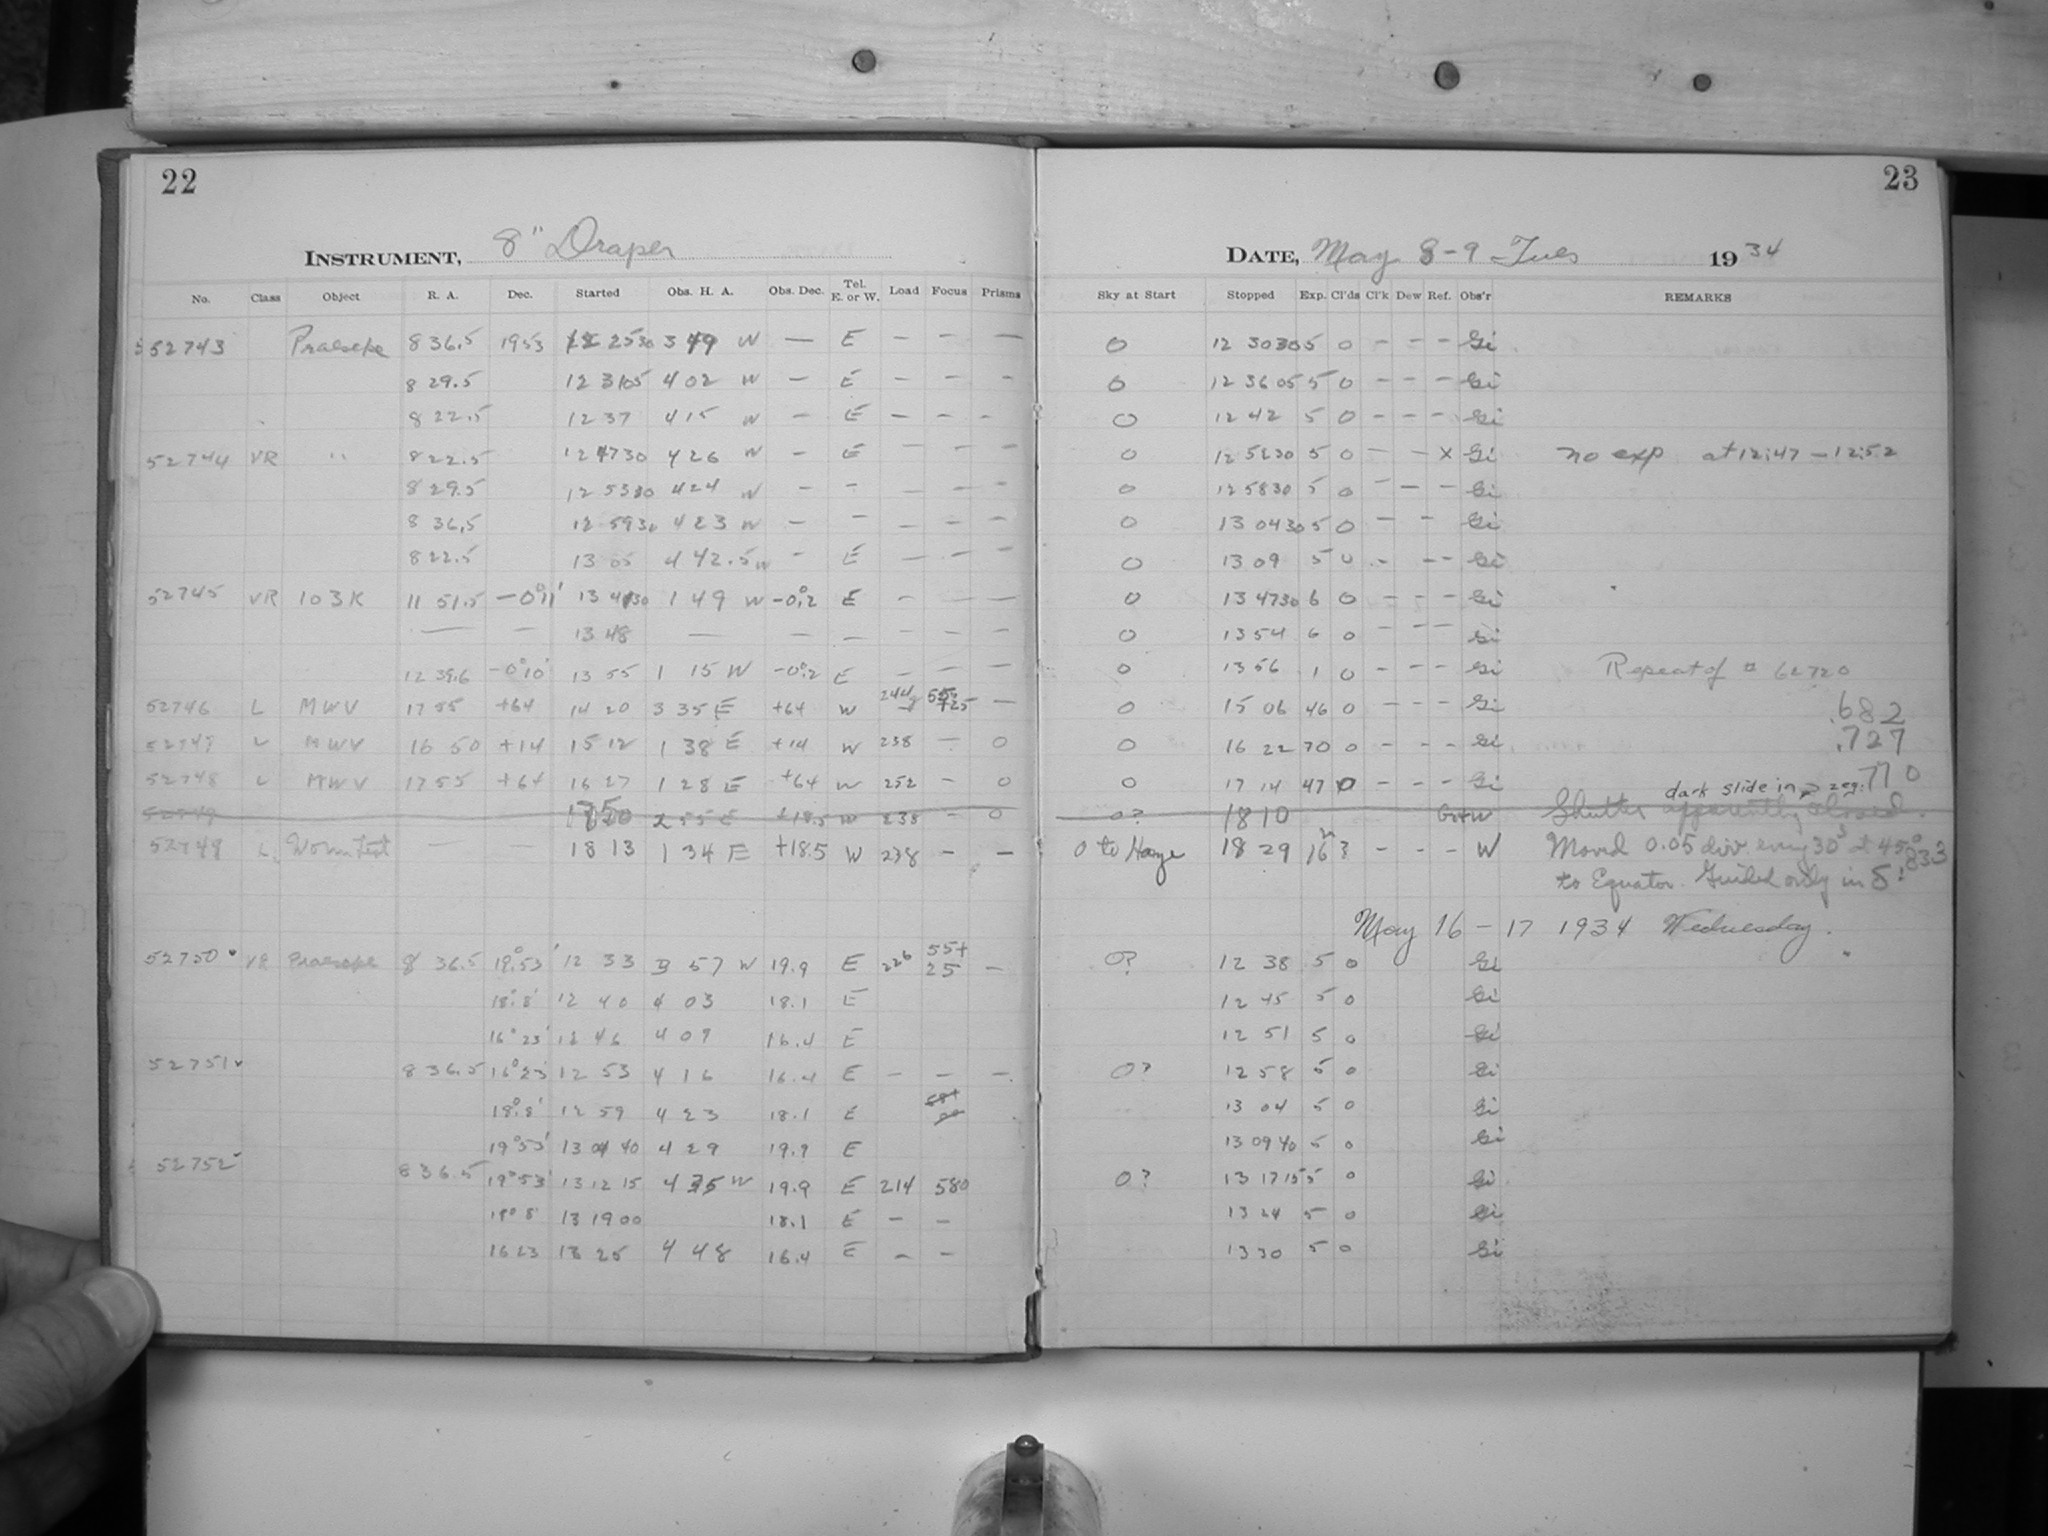 22
23
INSTRUMENT, 8" Draper
DATE, May 8-9 Tues 1934
No. Class Object R. A. Dec. Started Obs. H. A. Obs. Dec. Tel. E. or W. Load Focus Prisms Sky at Start Stopped Exp. Cl'ds Cl'k Dew Ref. Obs'r REMARKS
52743 Praesepe 8 36.5 19 53 12 25 30 3 49 W — E — — — 0 12 30 30 5 0 - - - Gi
8 29.5 12 31 05 4 02 W — E — — — 0 12 36 05 5 0 - - - Gi
8 22.5 12 37 4 15 W — E — — — 0 12 42 5 0 - - - Gi
52744 VR " 8 22.5 12 47 30 4 26 W — E — — — 0 12 52 30 5 0 — — x Gi no exp at 12:47 — 12:52
8 29.5 12 53 30 4 24 W — — — — — 0 12 58 30 5 0 - — - Gi
8 36.5 12 59 30 4 23 W — — — — — 0 13 04 30 5 0 — - Gi
8 22.5 13 05 4 42.5 W - E — — — 0 13 09 5 0 - - - Gi
52745 VR 103K 11 51.5 -0°11' 13 41 30 1 49 W -0°.2 E - — — 0 13 47 30 6 0 - - - Gi
— — 13 48 — — — — — — 0 13 54 6 0 - - - Gi
12 39.6 -0°10' 13 55 1 15 W -0°.2 E — — — 0 13 56 1 0 - - - Gi Repeat of # 62720
52746 L MWV 17 55 +64 14 20 3 35 E +64 W — 0 15 06 46 0 - - - Gi .682
52747 L MWV 16 50 +14 15 12 1 38 E +14 W 238 — 0 0 16 22 70 0 - - - Gi .727
52748 L MWV 17 55 +64 16 27 1 28 E +64 W 252 - 0 0 17 14 47 0 - - - Gi .770
dark slide in → zeg:
52749 2 55 E +18.5 W 238 - 0 0? 18 10 Gi+W Shutter apparently closed.
52749 L Worm Test — — 18 13 1 34 E +18.5 W 238 - - 0 to Haze 18 29 16m ? - - - W Moved 0.05 div every 30s at 45°
to Equator. Guided only in δ. .833
May 16 - 17 1934 Wednesday.
52750 VR Praesepe 8 36.5 19°53' 12 33 3 57 W 19.9 E 226 55+25 — 0? 12 38 5 0 Gi
18°8' 12 40 4 03 18.1 E 12 45 5 0 Gi
16°23' 12 46 4 09 16.4 E 12 51 5 0 Gi
52751 8 36.5 16°23' 12 53 4 16 16.4 E — — — 0? 12 58 5 0 Gi
18°8' 12 59 4 23 18.1 E 13 04 5 0 Gi
19°53' 13 04 40 4 29 19.9 E 13 09 40 5 0 Gi
52752 8 36.5 19°53' 13 12 15 4 35 W 19.9 E 214 580 0? 13 17 15 5 0 Gi
18°8' 13 19 00 18.1 E — — 13 24 5 0 Gi
16 23 13 25 4 48 16.4 E — — 13 30 5 0 Gi